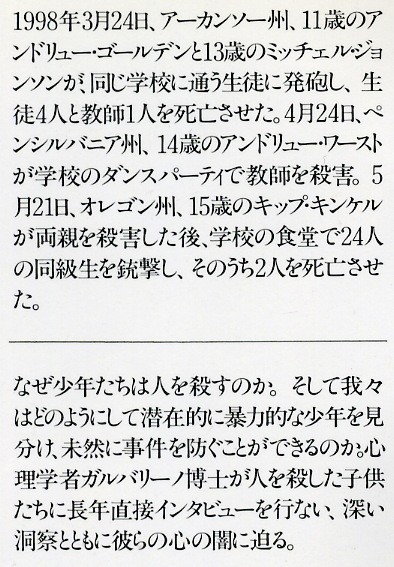 1998年3月24日、アーカンソー州、11歳のア
ンドリュー・ゴールデンと13歳のミッチェル・ジョ
ンソンが、同じ学校に通う生徒に発砲し、生
徒4人と教師1人を死亡させた。4月24日、ペ
ンシルバニア州、14歳のアンドリュー・ワースト
が学校のダンスパーティで教師を殺害。5
月21日、オレゴン州、15歳のキップ・キンケル
が両親を殺害した後、学校の食堂で24人
の同級生を銃撃し、そのうち2人を死亡させ
た。
なぜ少年たちは人を殺すのか。そして我々
はどのようにして潜在的に暴力的な少年を見
分け、未然に事件を防ぐことができるのか。心
理学者ガルバリーノ博士が人を殺した子供
たちに長年直接インタビューを行ない、深い
洞察とともに彼らの心の闇に迫る。